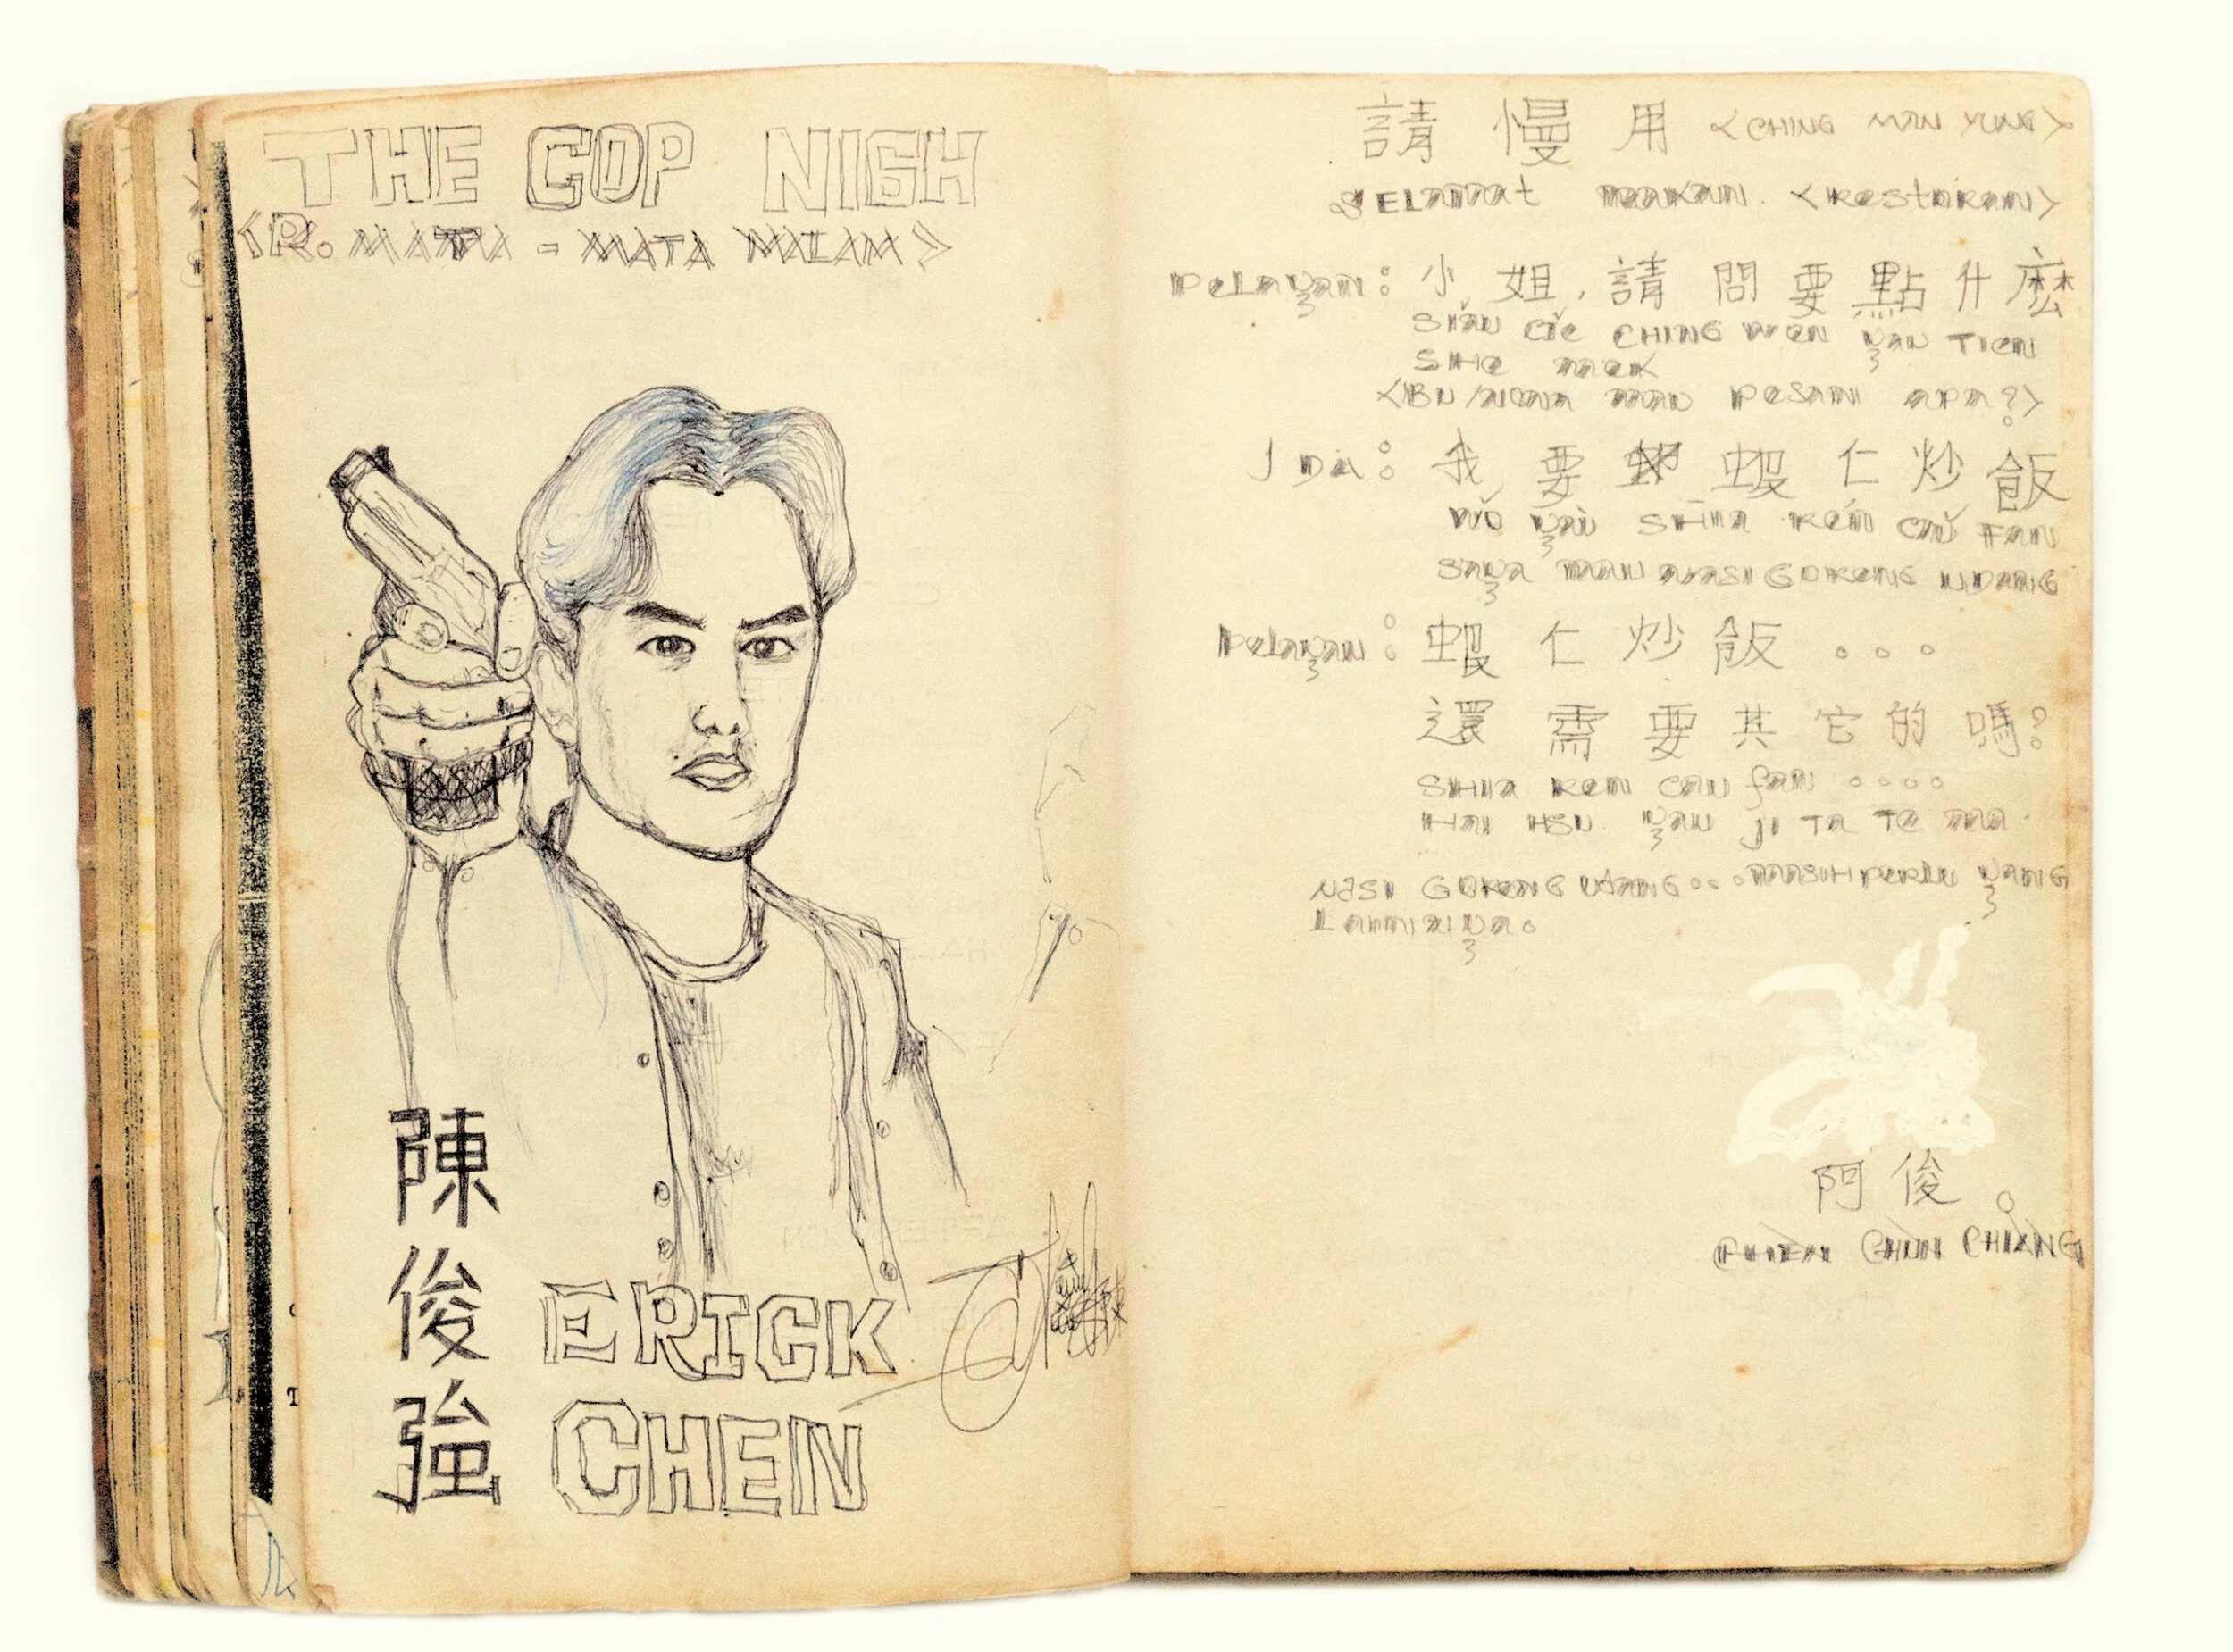 THE COP NIGH
<R. MATA = MATA MALAM>
陳
俊
強
ERICK
CHEN
請 慢 用 <CHING MAN YUNG>
SELAMAT MAKAN. <RestoRan>
PeLayan: 小 姐, 請 問 要 點 什 麼
CHING WEN yau TIEN
SHE
<IBU/NONA MAU PESAN APA?>
我 要 蝦 仁 炒 飯
WO yau SHIA REN CAU FAN
SAYA MAU NASI GORENG UDANG
PeLayan: 蝦 仁 炒 飯 . . .
還 需 要 其 它 的 嗎?
SHIA REN CAU fan ....
HAI HSU yau JI TA TE MA
NASI GORENG UDANG... MASIH PERLU yANG
LAINNYA.
阿 俊
CHEN CHUN CHIANG